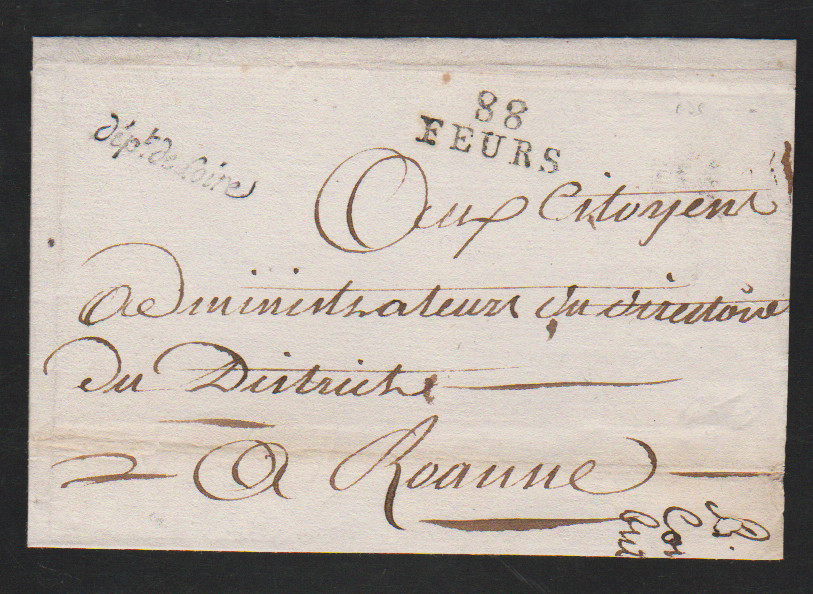 88
FEURS
dépt. de Loire
Aux Citoyens
administrateurs du directoire
du District
A Roanne
B.